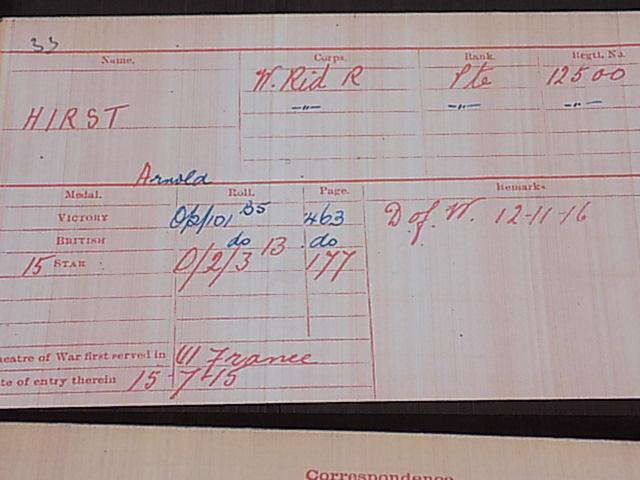 33
Name. Corps. Rank. Regtl. No.
W. Rid R Pte 12500
HIRST -"- -"- -"-
Arnold
Medal. Roll. Page. Remarks.
VICTORY O/p/101 B5 463 D of W. 12-11-16
BRITISH do do
15 STAR O/2/3 13 177
heatre of War first served in (1) France
te of entry therein 15-7-15
Correspondence